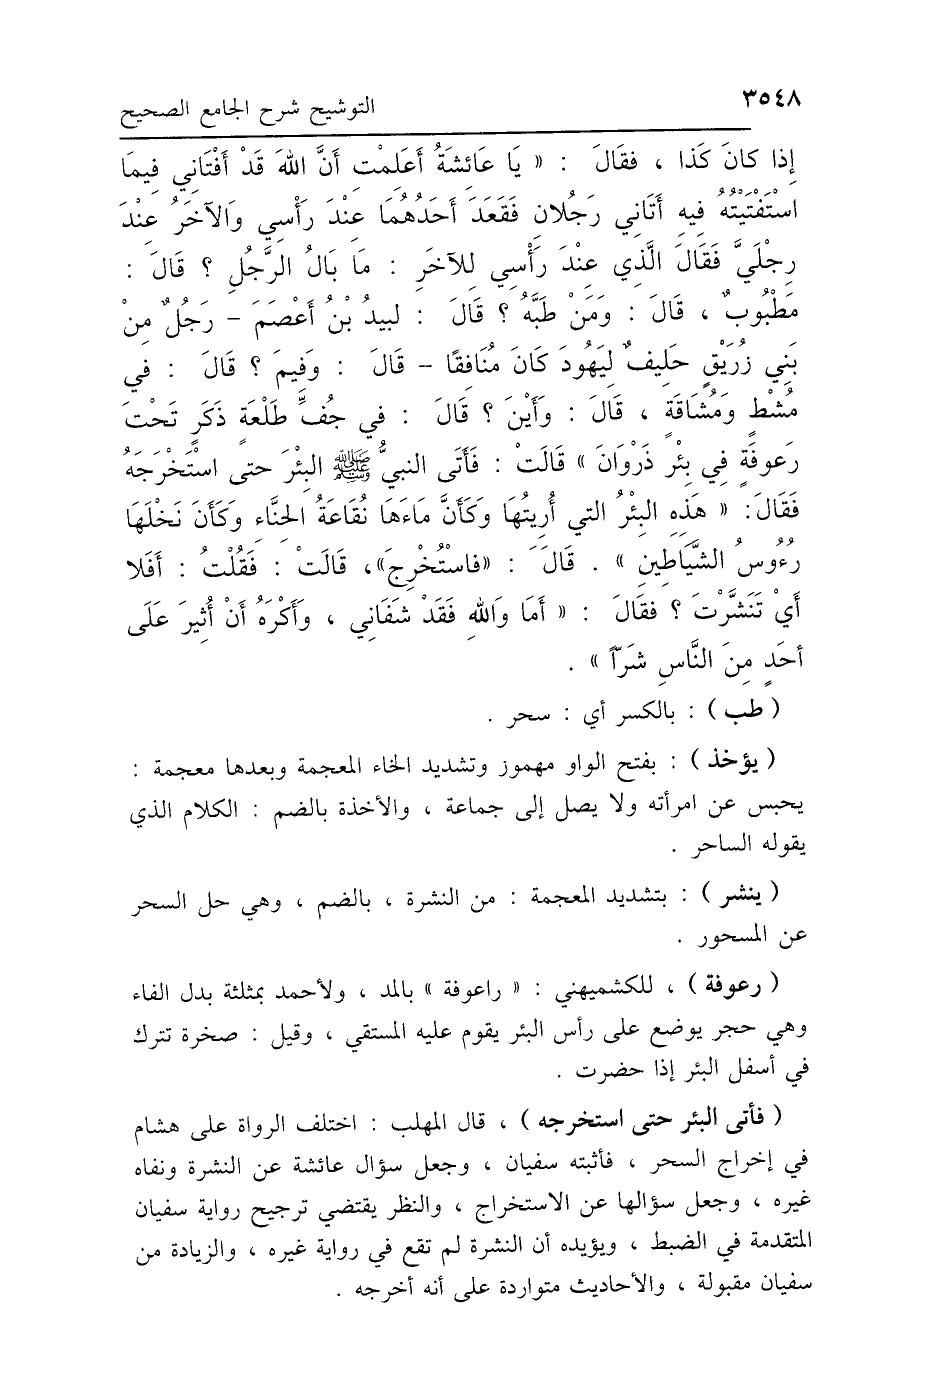 ٣٥٤٨
التوشيح شرح الجامع الصحيح
إِذا كانَ كَذا ، فقَالَ : « يَا عَائشَةُ أَعَلمْت أَنَّ اللهَ قَدْ أَفْتَاني فيمَا
اسْتَفْتَيْتُهُ فيه أَتَاني رَجُلان فَقَعَدَ أَحَدُهُمَا عِنْدَ رَأْسِي وَالآخَرُ عِنْدَ
رِجْلَيَّ فَقَالَ الَّذِي عِنْدَ رَأْسِي لِلآخَرِ : مَا بَالُ الرَّجُلِ ؟ قَالَ :
مَطْبُوبٌ ، قَالَ : وَمَنْ طَبَّهُ ؟ قَالَ : لبيدُ بْنُ أَعْصَمَ – رَجُلٌ مِنْ
بَنِي زُرَيْقٍ حَلِيفٌ لِيَهُودَ كَانَ مُنَافقًا – قَالَ : وَفِيمَ ؟ قَالَ : في
مُشْطٍ وَمُشَاقَةٍ ، قَالَ : وَأَيْنَ ؟ قَالَ : في جُفِّ طَلْعَةٍ ذَكَرٍ تَحْتَ
رَعوفَةٍ فِي بئْرِ ذَرْوَانَ » قَالَتْ : فَأَتَى النبيُّ ﷺ البئْرَ حتى اسْتَخْرَجَهُ
فَقَالَ: « هَذِهِ البئْرُ التي أُرِيتُهَا وَكَأَنَّ مَاءَهَا نُقَاعَةُ الحِنَّاءِ وَكَأَنَ نَخْلَهَا
رُءُوسُ الشَّيَاطِينِ » . قَالَ : «فاسْتُخْرِجَ»، قَالَتْ : فَقُلْتُ : أَفَلا
أَيْ تَنَشَّرْتَ ؟ فقَالَ : « أَمَا وَاللهِ فَقَدْ شَفَانِي ، وَأَكْرَهُ أَنْ أُثِيرَ عَلَى
أَحَدٍ مِنَ النَّاسِ شَرّاً » .
( طب ) : بالكسر أي : سحر .
( يؤخذ ) : بفتح الواو مهموز وتشديد الخاء المعجمة وبعدها معجمة :
يحبس عن امرأته ولا يصل إلى جماعة ، والأخذة بالضم : الكلام الذي
يقوله الساحر .
( ينشر ) : بتشديد المعجمة : من النشرة ، بالضم ، وهي حل السحر
عن المسحور .
( رعوفة ) ، للكشميهني : « راعوفة » بالمد ، ولأحمد بمثلثة بدل الفاء
وهي حجر يوضع على رأس البئر يقوم عليه المستقي ، وقيل : صخرة تترك
في أسفل البئر إذا حضرت .
( فأتى البئر حتى استخرجه ) ، قال المهلب : اختلف الرواة على هشام
في إخراج السحر ، فأثبته سفيان ، وجعل سؤال عائشة عن النشرة ونفاه
غيره ، وجعل سؤالها عن الاستخراج ، والنظر يقتضي ترجيح رواية سفيان
المتقدمة في الضبط ، ويؤيده أن النشرة لم تقع في رواية غيره ، والزيادة من
سفيان مقبولة ، والأحاديث متواردة على أنه أخرجه .